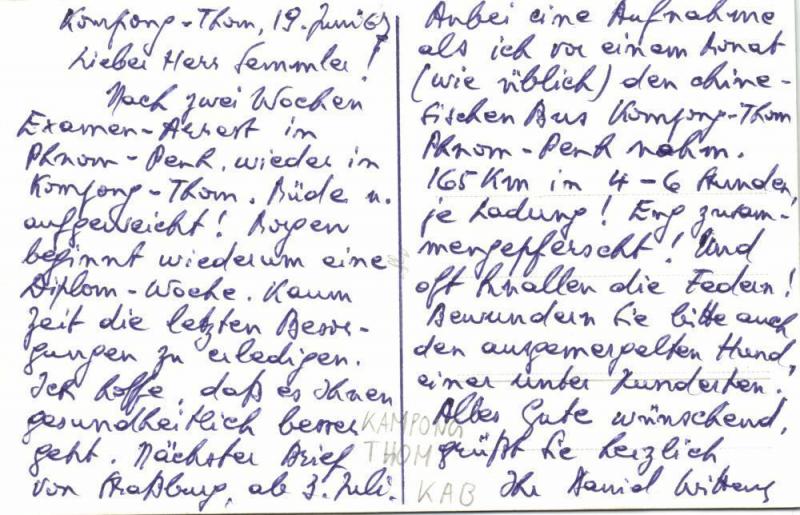 Kompong-Thom, 19. Juni 67
Lieber Herr Semmler!
Nach zwei Wochen
Examen-Arrest in
Phnom-Penh, wieder in
Kompong-Thom. Müde u.
aufgeweicht! Morgen
beginnt wiederum eine
Diplom-Woche. Kaum
Zeit die letzten Besor-
gungen zu erledigen.
Ich hoffe, daß es Ihnen
gesundheitlich besser
geht. Nächster Brief
von Straßburg, ab 3. Juli.
Anbei eine Aufnahme
als ich vor einem Monat
(wie üblich) den chine-
sischen Bus Kompong-Thom
Phnom-Penh nahm.
165 Km in 4-6 Stunden,
je Ladung! Eng zusam-
mengepferscht! Und
oft knallen die Federn!
Bewundern Sie bitte auch
den ausgemergelten Hund,
einer unter Hunderten.
Alles Gute wünschend,
grüßt Sie herzlich
Ihr Daniel
KAMPONG
THOM
KAB